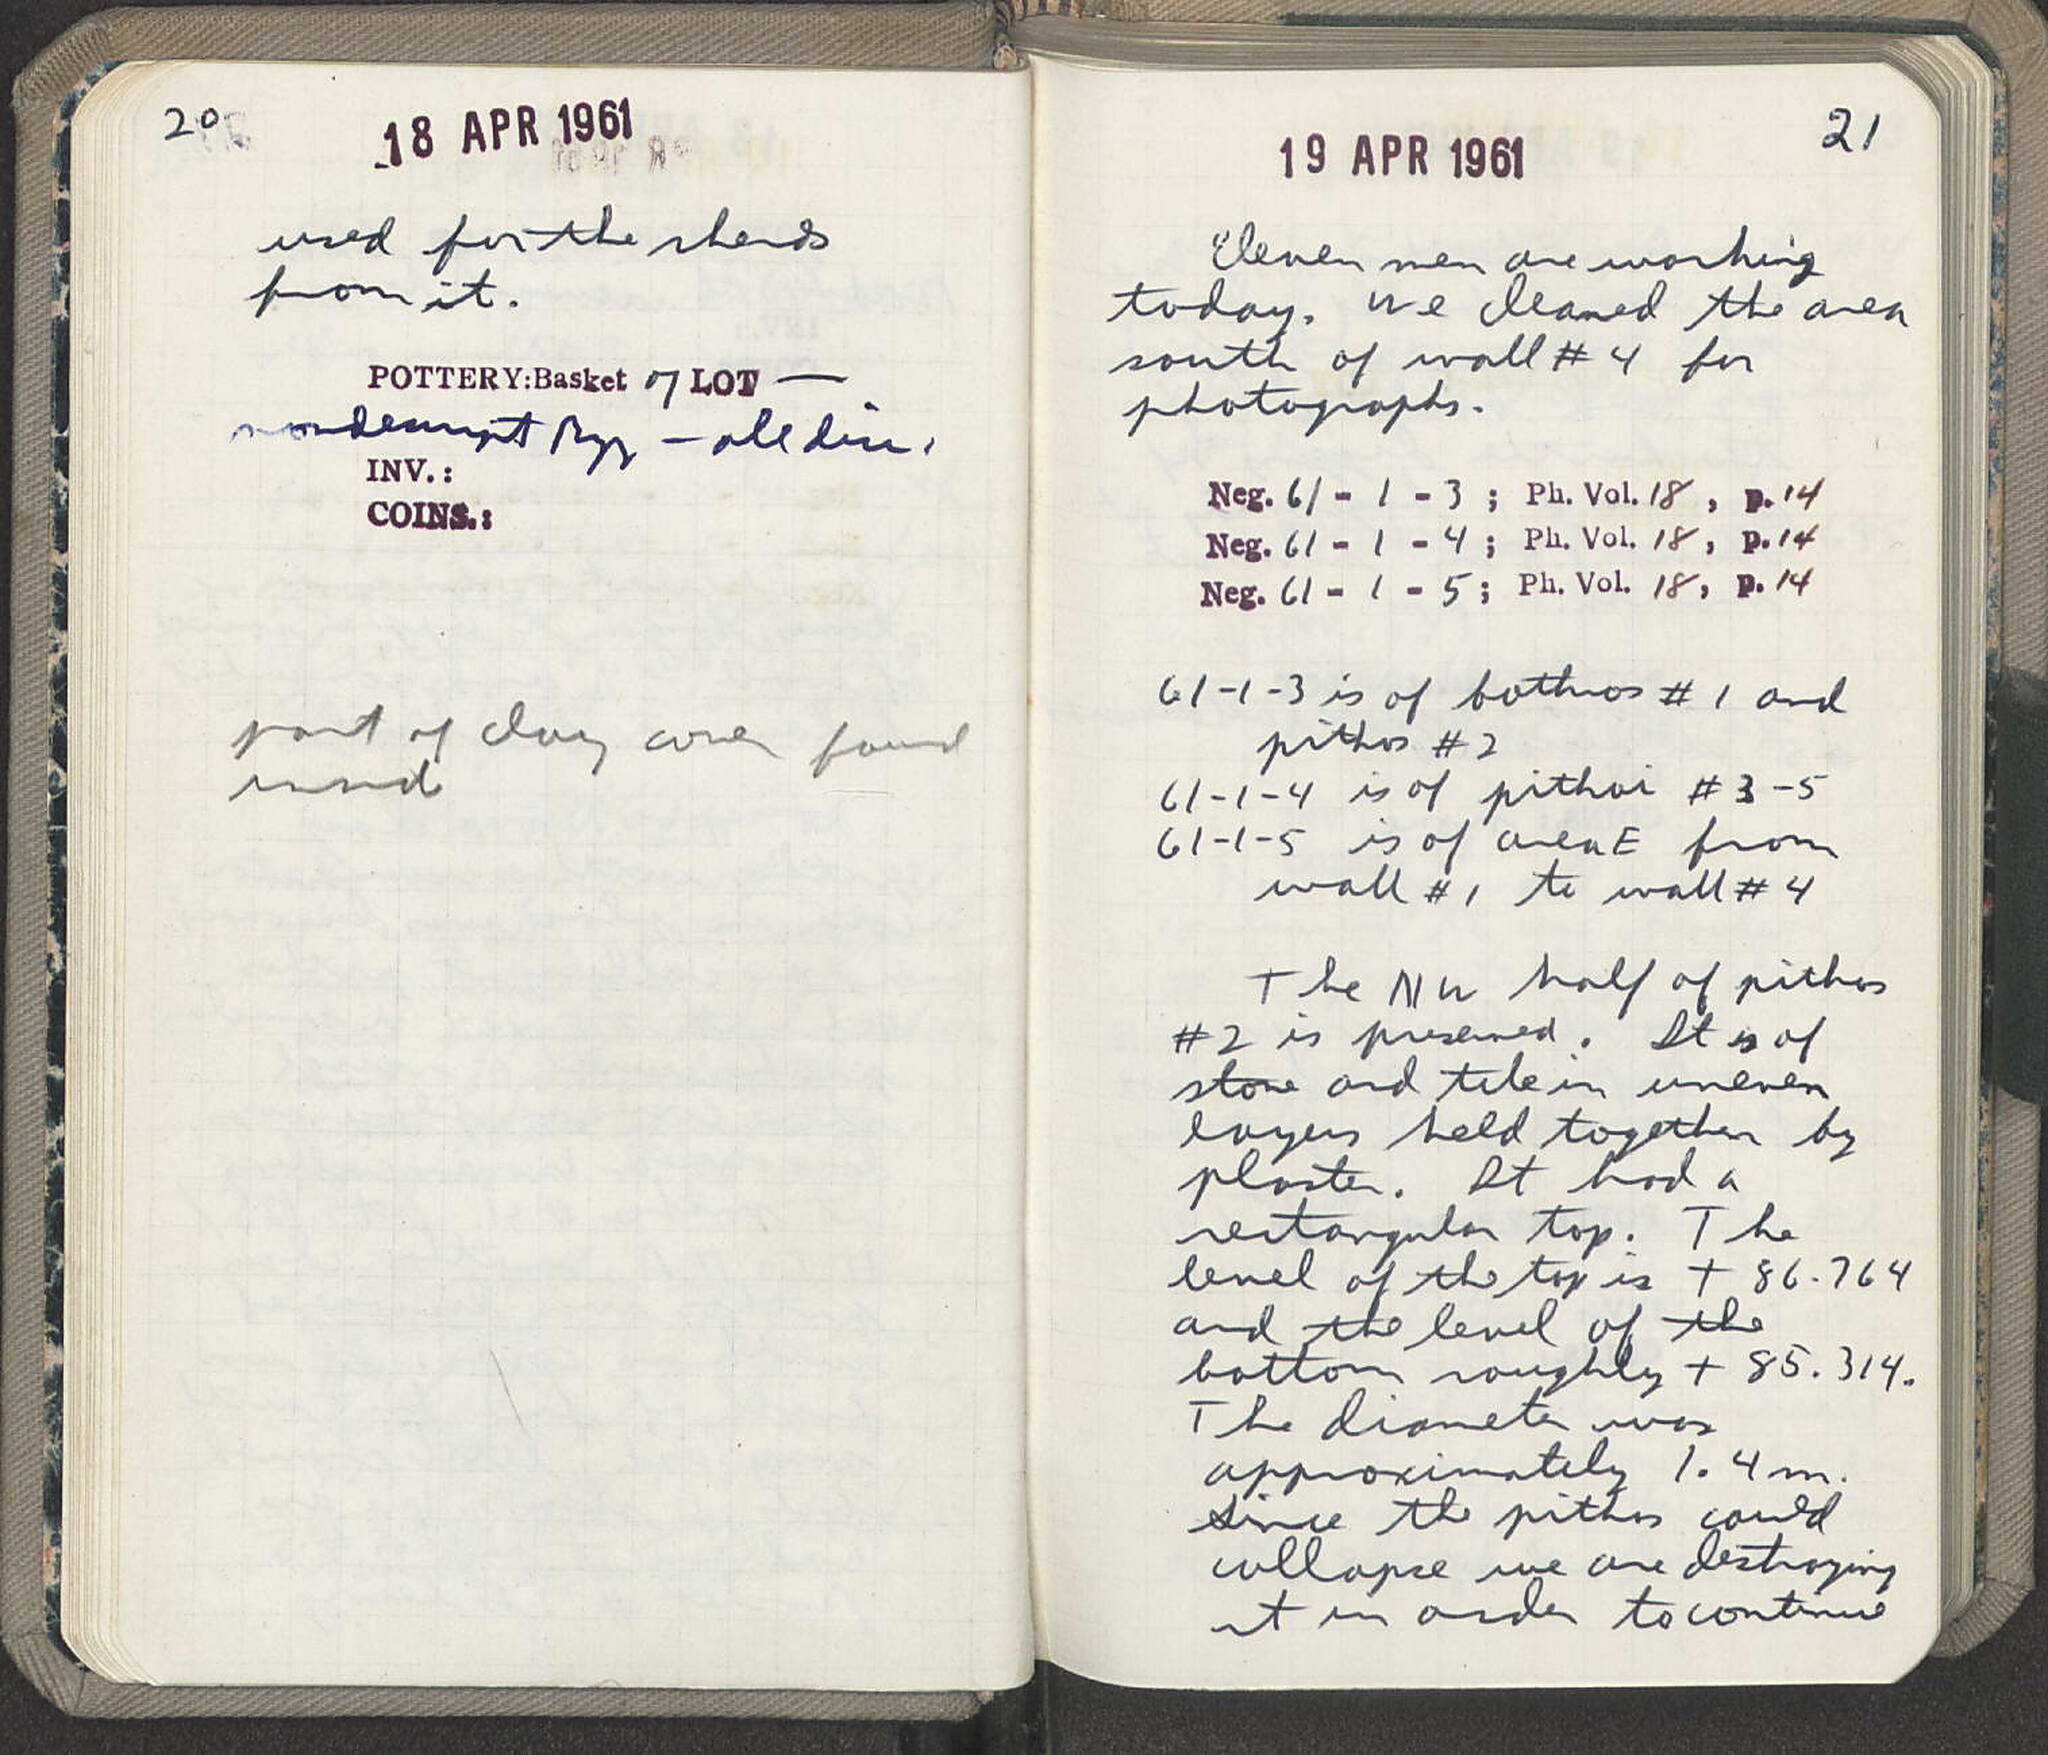 20
18 APR 1961
used for the sherds
from it.
POTTERY: Basket 07 LOT —
nondescript Byz — all disc.
INV.:
COINS.:
part of clay cover found
inside
21
19 APR 1961
Eleven men are working
today. We cleaned the area
south of wall # 4 for
photographs.
Neg. 61 - 1 - 3 ; Ph. Vol. 18 , p. 14
Neg. 61 - 1 - 4 ; Ph. Vol. 18 , p. 14
Neg. 61 - 1 - 5 ; Ph. Vol. 18 , p. 14
61-1-3 is of bothros # 1 and
pithos # 2
61-1-4 is of pithoi # 3-5
61-1-5 is of area E from
wall # 1 to wall # 4
The NW half of pithos
# 2 is preserved. It is of
stone and tile in uneven
layers held together by
plaster. It had a
rectangular top. The
level of the top is + 86.764
and the level of the
bottom roughly + 85.314.
The diameter was
approximately 1.4 m.
Since the pithos could
collapse we are destroying
it in order to continue